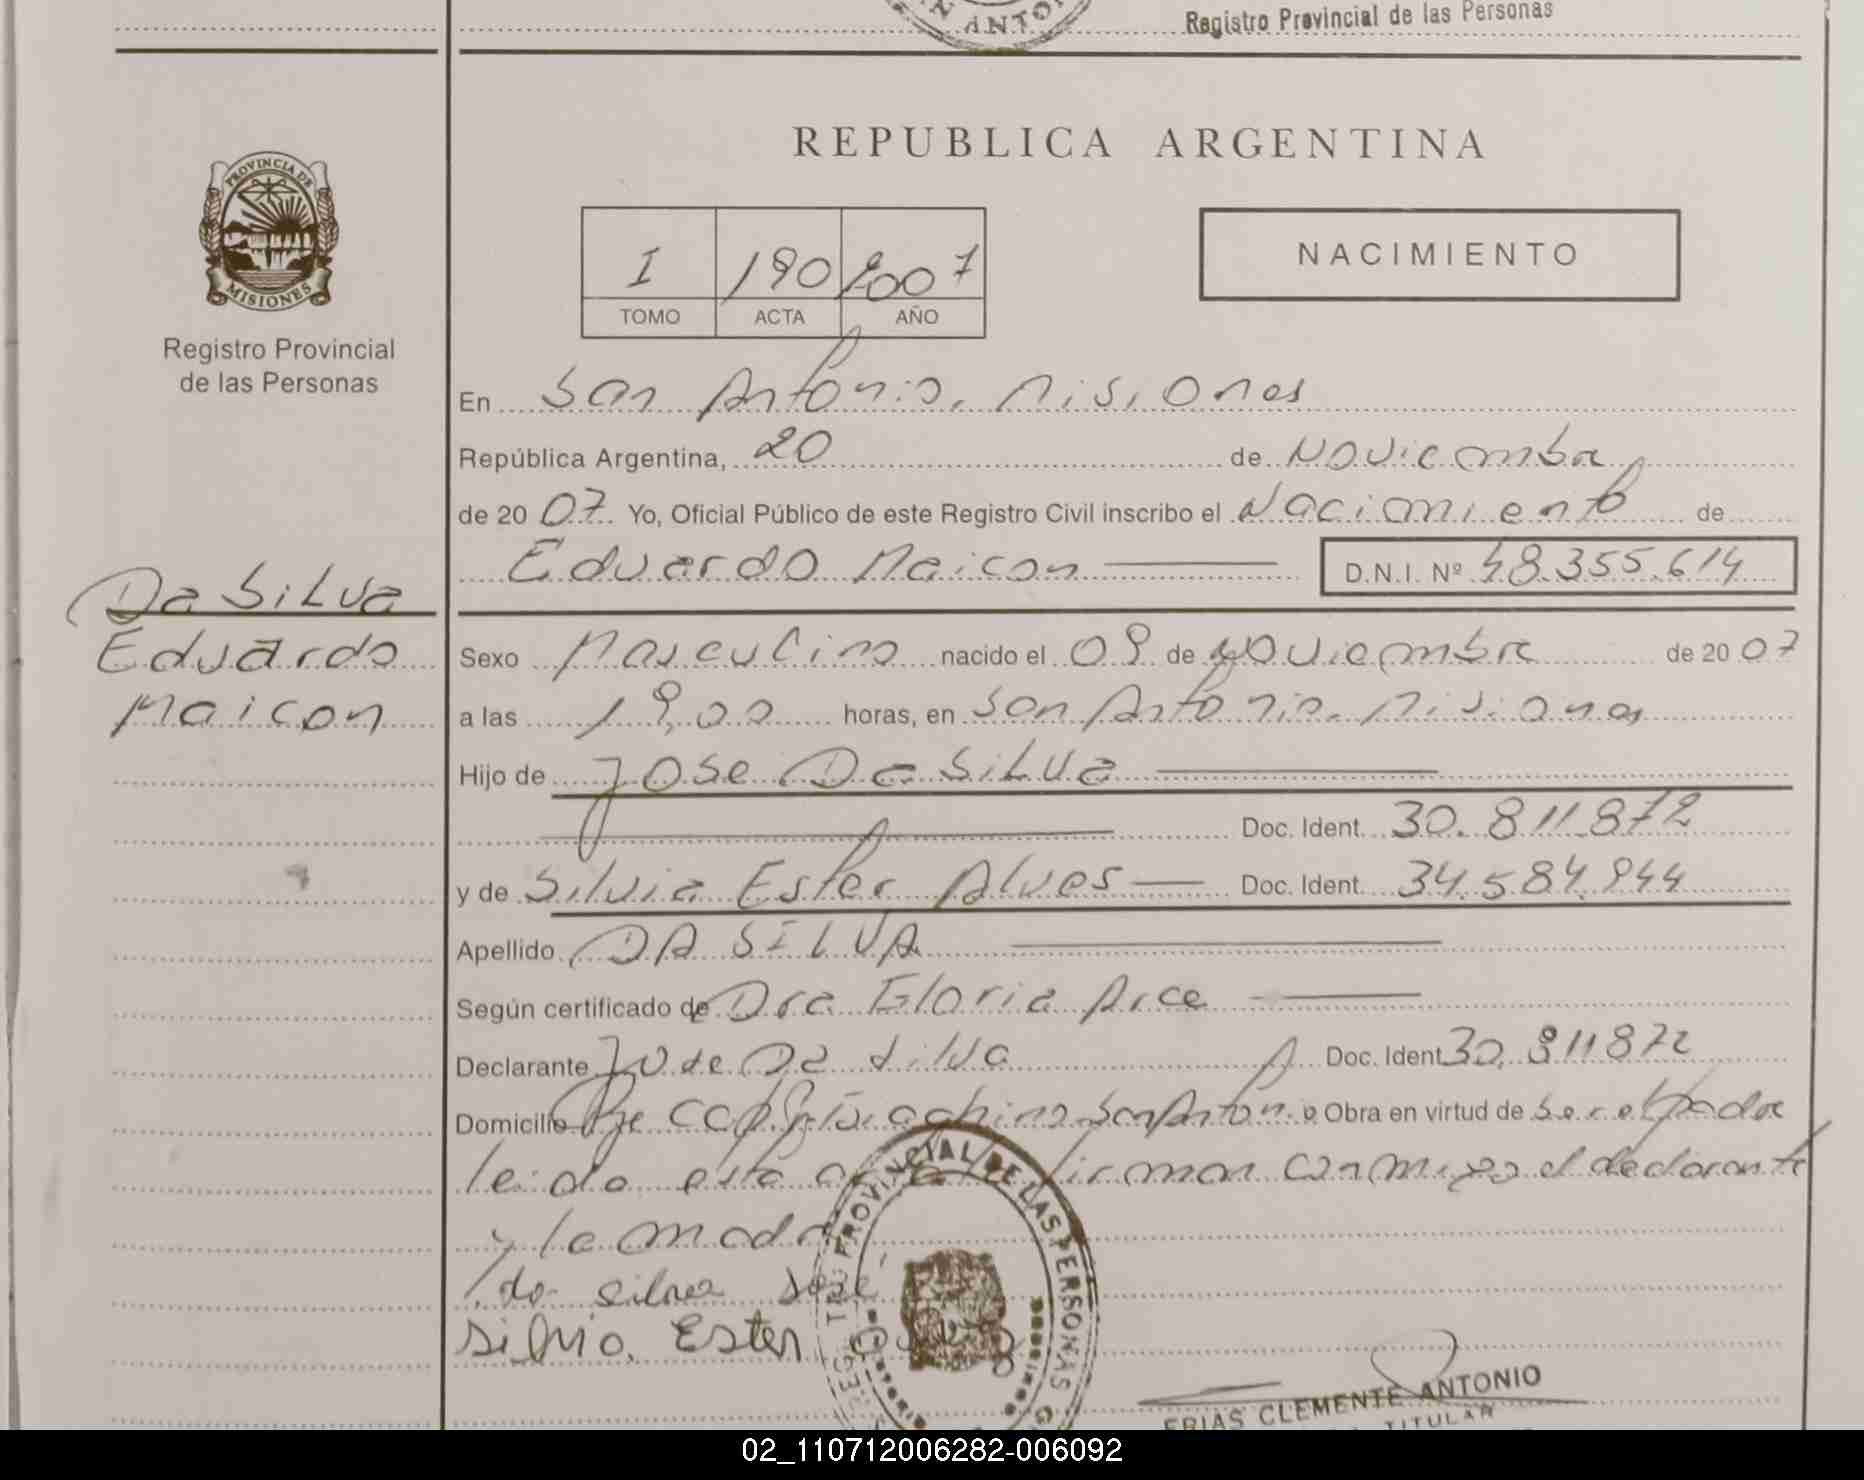 Registro Provincial de las Personas
SAN ANTONIO
REPUBLICA ARGENTINA
PROVINCIA DE
MISIONES
Registro Provincial
de las Personas
I 190 2007
TOMO ACTA AÑO
NACIMIENTO
En San Antonio, Misiones
República Argentina, 20 de Noviembre
de 20 07 Yo, Oficial Público de este Registro Civil inscribo el Nacimiento de
Eduardo Maicon D.N.I. Nº 48.355.614
Da Silva
Eduardo
Maicon
Sexo Masculino nacido el 09 de Noviembre de 20 07
a las 19,00 horas, en San Antonio, Misiones
Hijo de Jose Da Silva
Doc. Ident. 30.811.872
y de Silvia Ester Alves Doc. Ident. 34.584.944
Apellido DA SILVA
Según certificado de Dra Gloria Arce
Declarante Jose Da Silva Doc. Ident 30.811872
Domicilio San Antonio Obra en virtud de
leida esta acta firman conmigo el declarante
y la madre
da silva José
Silvia Ester
REGISTRO PROVINCIAL DE LAS PERSONAS
FRIAS CLEMENTE ANTONIO
TITULAR
02_110712006282-006092